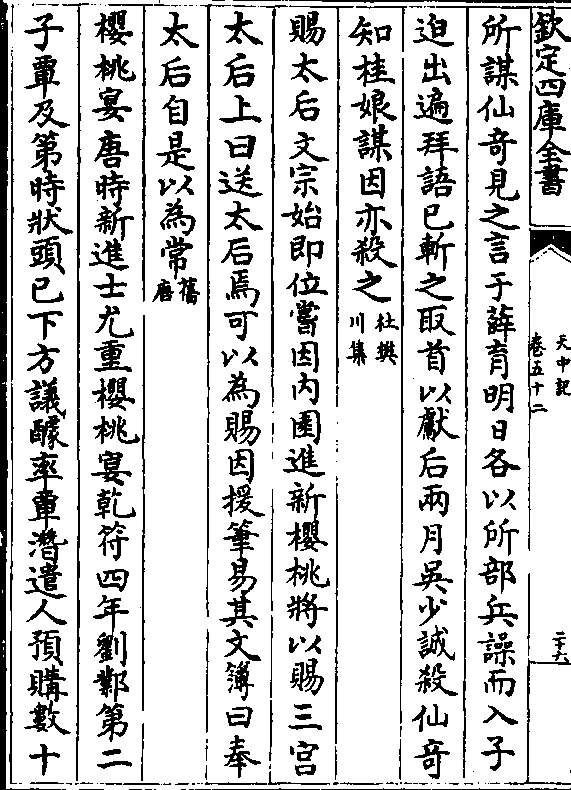 欽定四庫全書
天中記
卷五十二
二十六
所謀仙奇見之言于薛育明日各以所部兵譟而入子
迫出遍拜語已斬之取首以獻后兩月吳少誠殺仙奇
知桂娘謀因亦殺之杜樊川集
賜太后文宗始即位嘗因内園進新櫻桃將以賜三宫
太后上曰送太后焉可以為賜因援筆易其文簿曰奉
太后自是以為常舊唐
櫻桃宴唐時新進士尤重櫻桃宴乾符四年劉鄴第二
子覃及第時狀頭已下方議醵率覃潛遣人預購數十